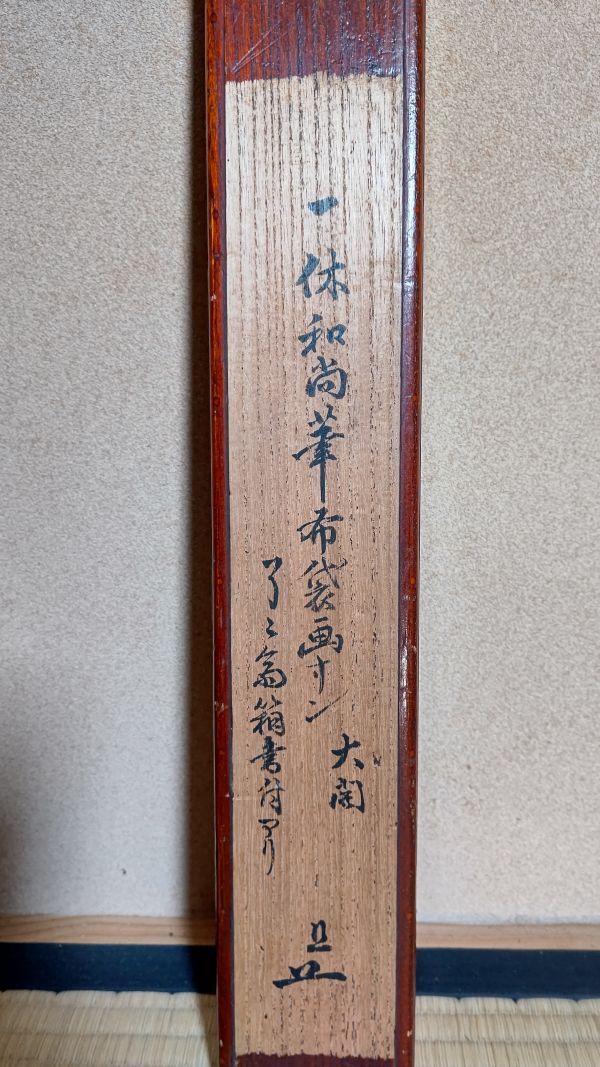 一休和尚筆布袋画サン
大閑
了々斎箱書付アリ